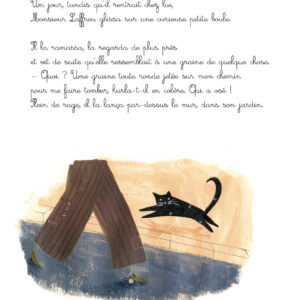 Un jour, tandis qu'il rentrait chez lui,
Monsieur Zaffreu glissa sur une curieuse petite boule.
Il la ramassa, la regarda de plus près
et vit de suite qu'elle ressemblait à une graine de quelque chose.
– Quoi ? Une graine toute ronde jetée sur mon chemin
pour me faire tomber, hurla-t-il en colère. Qui a osé !
Plein de rage, il la lança par-dessus le mur, dans son jardin.